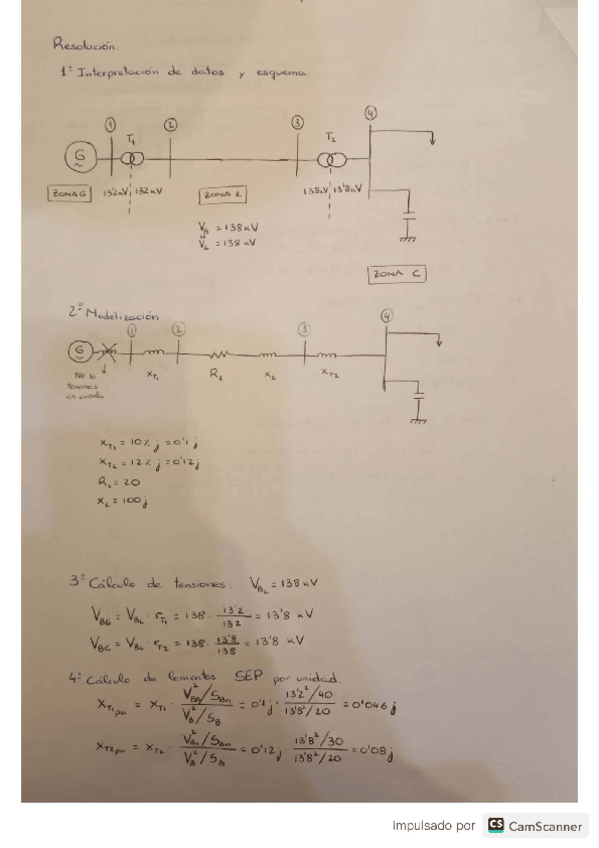 Resolución:
1º Interpretación de datos y esquema.
① ② ③ ④
T₁ T₂
G
ZONA G 13'2kV 132kV ZONA L 138kV 13'8kV
V_B = 138 kV
V_L = 138 kV
ZONA C
2º Modelización
① ② ③ ④
G
X_T₁ R_L X_L X_T₂
No lo
tenemos
en cuenta
X_T₁ = 10% j = 0'1 j
X_T₂ = 12% j = 0'12 j
R_L = 20
X_L = 100 j
3º Cálculo de tensiones: V_BL = 138 kV
V_BG = V_BL · r_T₁ = 138 · 13'2/132 = 13'8 kV
V_BC = V_BL · r_T₂ = 138 · 13'8/138 = 13'8 kV
4º Cálculo de lementos SEP por unidad.
X_T₁pu = X_T₁ · (V²_Bn/S_Bn)/(V²_B/S_B) = 0'1 j · (13'2²/40)/(13'8²/20) = 0'046 j
X_T2pu = X_T₂ · (V²_Bn/S_Bn)/(V²_B/S_B) = 0'12 j · (13'8²/30)/(13'8²/20) = 0'08 j
Impulsado por CS CamScanner